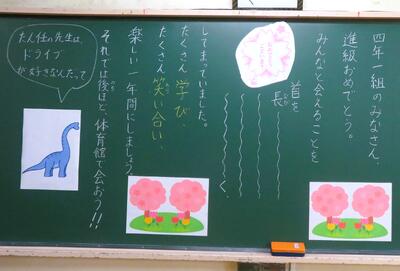 四年一組のみなさん、
進級おめでとう。
みんなと会えることを
首を
長く
してまっていました。
たくさん学び、
たくさん笑い合い、
楽しい一年間にしましょう。
それでは後ほど、体育館で会おう!!
たん任の先生は、
ドライブ
が好きなんだって